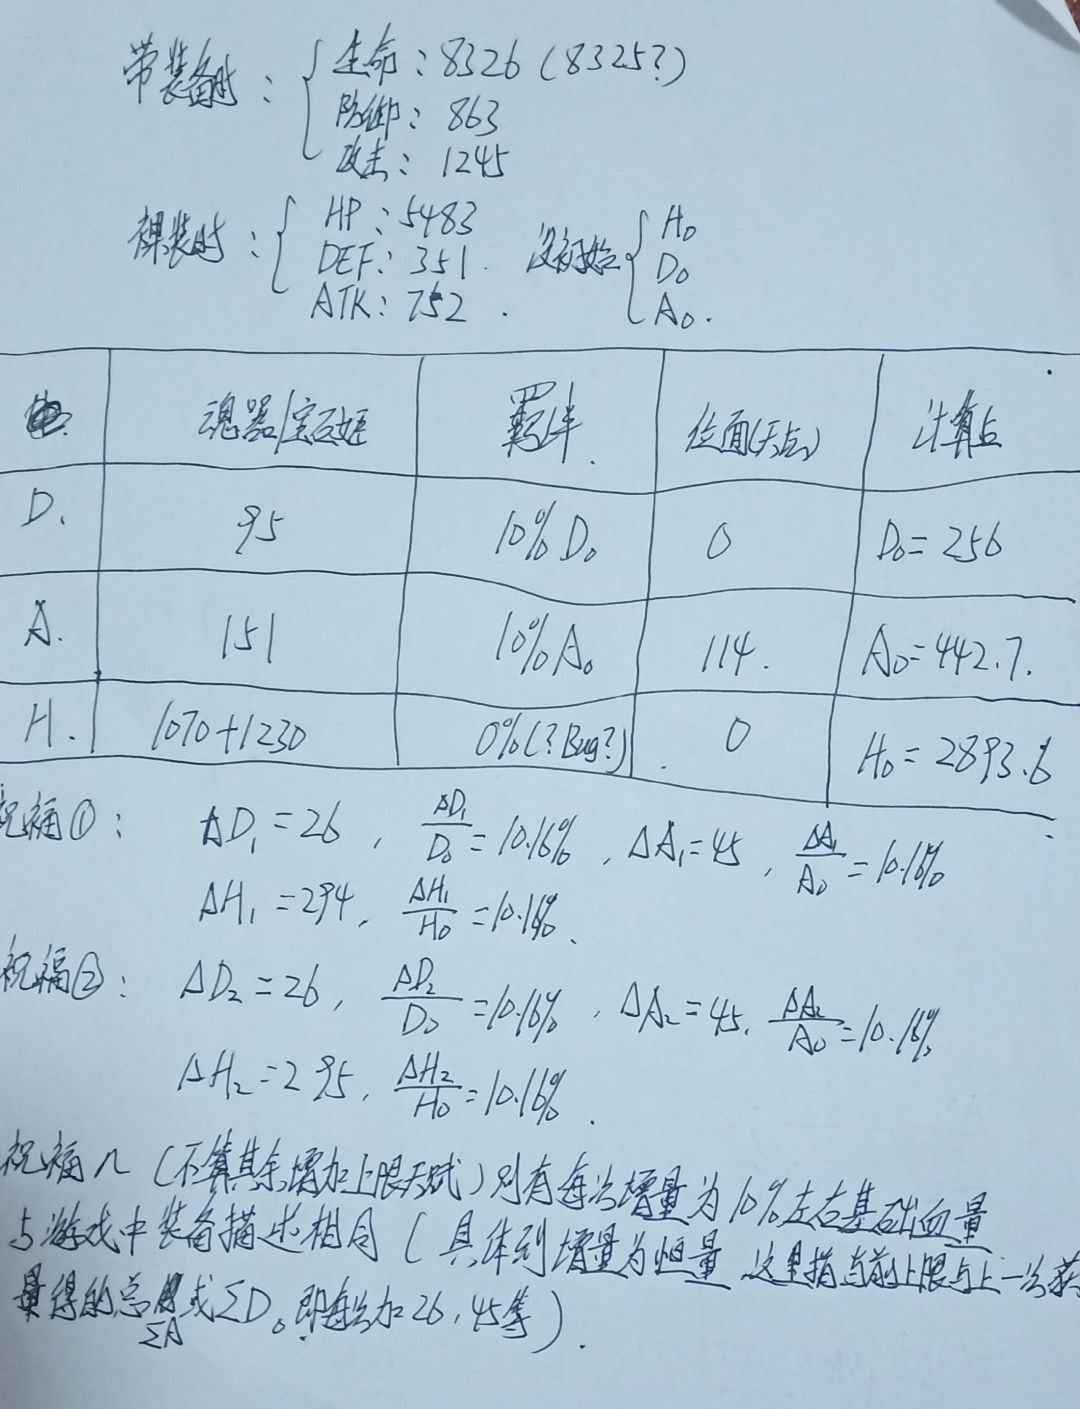 带装备时：
生命：8326（8325?）
防御：863
攻击：1245
裸装时：
HP：5483
DEF：351.
ATK：752.
设初始
H₀
D₀
A₀.
魂器/宝石姬 羁绊. 位面(天点) 计算占
D. 95 10% D₀ 0 D₀=256
A. 151 10% A₀ 114. A₀=442.7.
H. 1070+1230 0%(?Bug?) 0 H₀=2893.6
祝福①： ΔD₁=26, ΔD₁/D₀=10.16%, ΔA₁=45, ΔA₁/A₀=10.16%
ΔH₁=294, ΔH₁/H₀=10.16%.
祝福②： ΔD₂=26, ΔD₂/D₀=10.16%, ΔA₂=45. ΔA₂/A₀=10.16%
ΔH₂=295, ΔH₂/H₀=10.16%.
祝福n（不算其余增加上限天赋）则有每次增量为10%左右基础血量
与游戏中装备描述相同（具体到增量为恒量 这里指当前上限与上一次获
得的总 或ΣD。即每次加26,45等）.
ΣA